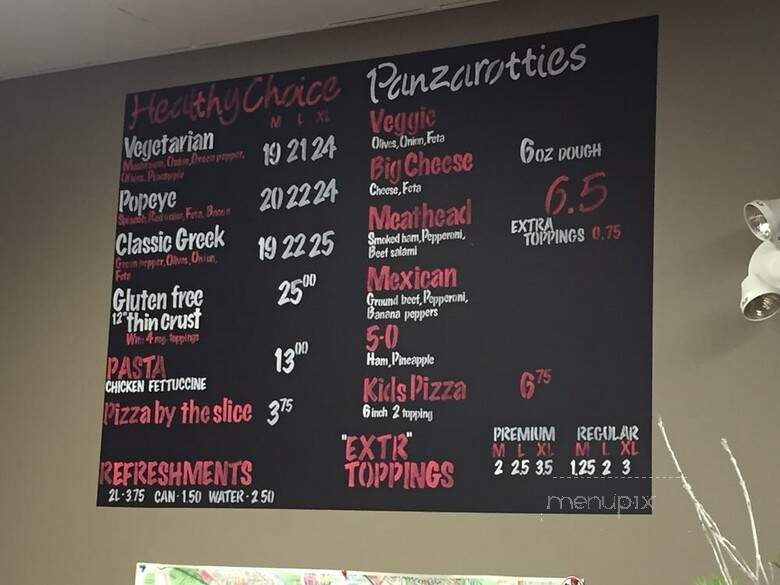 Healthy Choice
M L XL
Vegetarian 19 21 24
Mushroom, Onion, Green pepper,
Olives, Pineapple
Popeye 20 22 24
Spinach, Red onion, Feta, Bacon
Classic Greek 19 22 25
Green pepper, Olives, Onion,
Feta
Gluten free 25 00
12" thin crust
With 4 reg. toppings
PASTA 13 00
CHICKEN FETTUCCINE
Pizza by the slice 3 75
REFRESHMENTS
2L - 3.75 CAN - 1.50 WATER - 2 50
Panzarotties
Veggie
Olives, Onion, Feta
Big Cheese
Cheese, Feta
Meathead
Smoked ham, Pepperoni,
Beef salami
Mexican
Ground beef, Pepperoni,
Banana peppers
5-0
Ham, Pineapple
6 OZ DOUGH
6.5
EXTRA
TOPPINGS 0.75
Kids Pizza 6 75
6 inch 2 topping
"EXTR"
TOPPINGS
PREMIUM REGULAR
M L XL M L XL
2 2.5 3.5 1.25 2 3
menupix